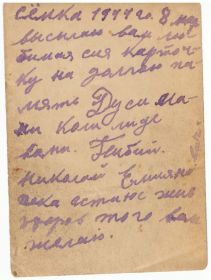 сёмка 1944 го. 8 мая
высылаю вам лю
бимая сия карточ
ку на долгаю па
мять Дуси ма
ни коли лиде
вани.
Николай Емильяно
пока остаюс жив
здоров того вам
желаю.